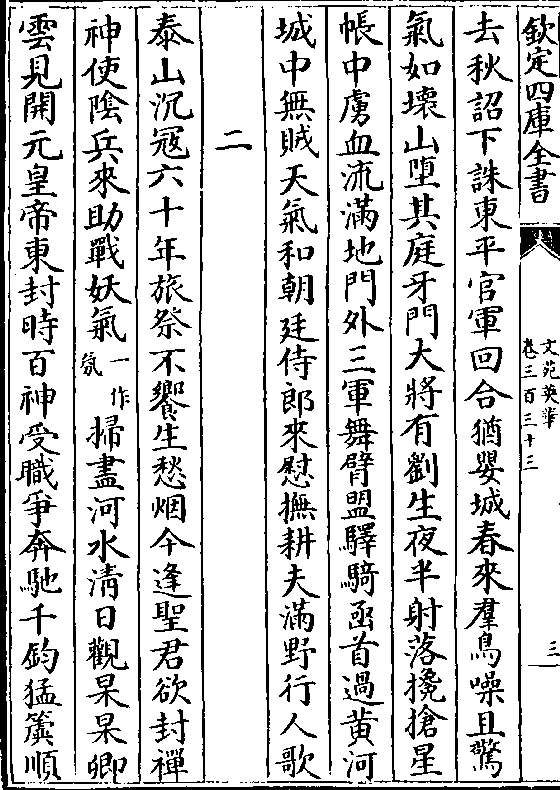 欽定四庫全書
文苑英華
卷三百三十三
三
去秋詔下誅東平官軍回合猶嬰城春來羣鳥噪且驚
氣如壞山堕其庭牙門大將有劉生夜半射落攙搶星
帳中虜血流滿地門外三軍舞臂盟驛騎函首過黄河
城中無賊天氣和朝廷侍郎來慰撫耕夫滿野行人歌
二
泰山沉冦六十年旅祭不饗生愁烟今逢聖君欲封禪
神使隂兵來助戰妖氣一作氛掃盡河水清日觀杲杲卿
雲見開元皇帝東封時百神受職爭奔馳千鈞猛簴順